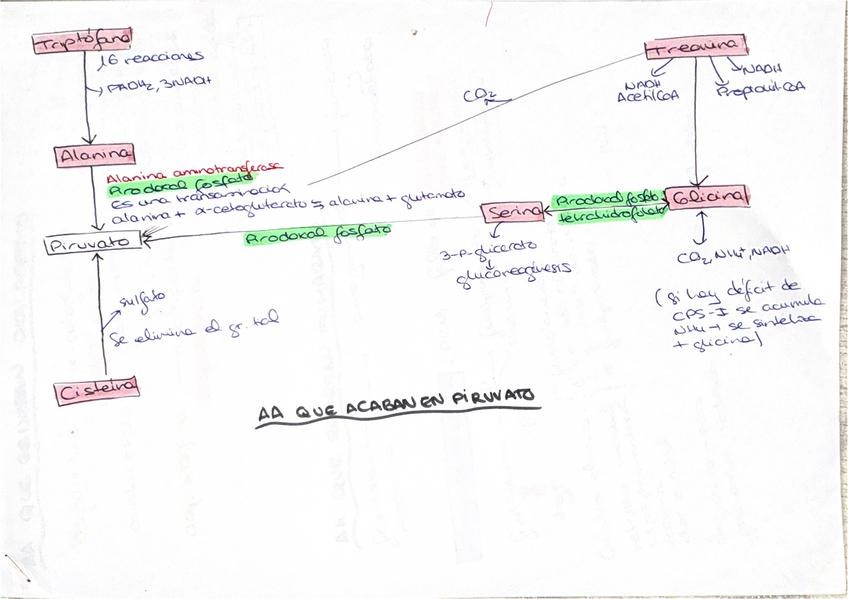 Triptófano
16 reacciones
FADH2, 3NADH
Alanina
Alanina aminotransferasa
Pirodoxal fosfato
Es una transaminación
alanina + α-cetogluterato ⇆ alanina + glutamato
Piruvato
Pirodoxal fosfato
sulfato
Se elimina el gr. tiol
Cisteína
CO2
Treonina
NADH
Acetil CoA
NADH
Propionil-CoA
Serina
Pirodoxal fosfato
tetrahidrofolato
Glicina
3-P-glicerato
gluconeogénesis
CO2, NH4+, NADH
(si hay déficit de
CPS-I se acumula
NH4 → se sintetiza
+ glicina)
AA QUE ACABAN EN PIRUVATO